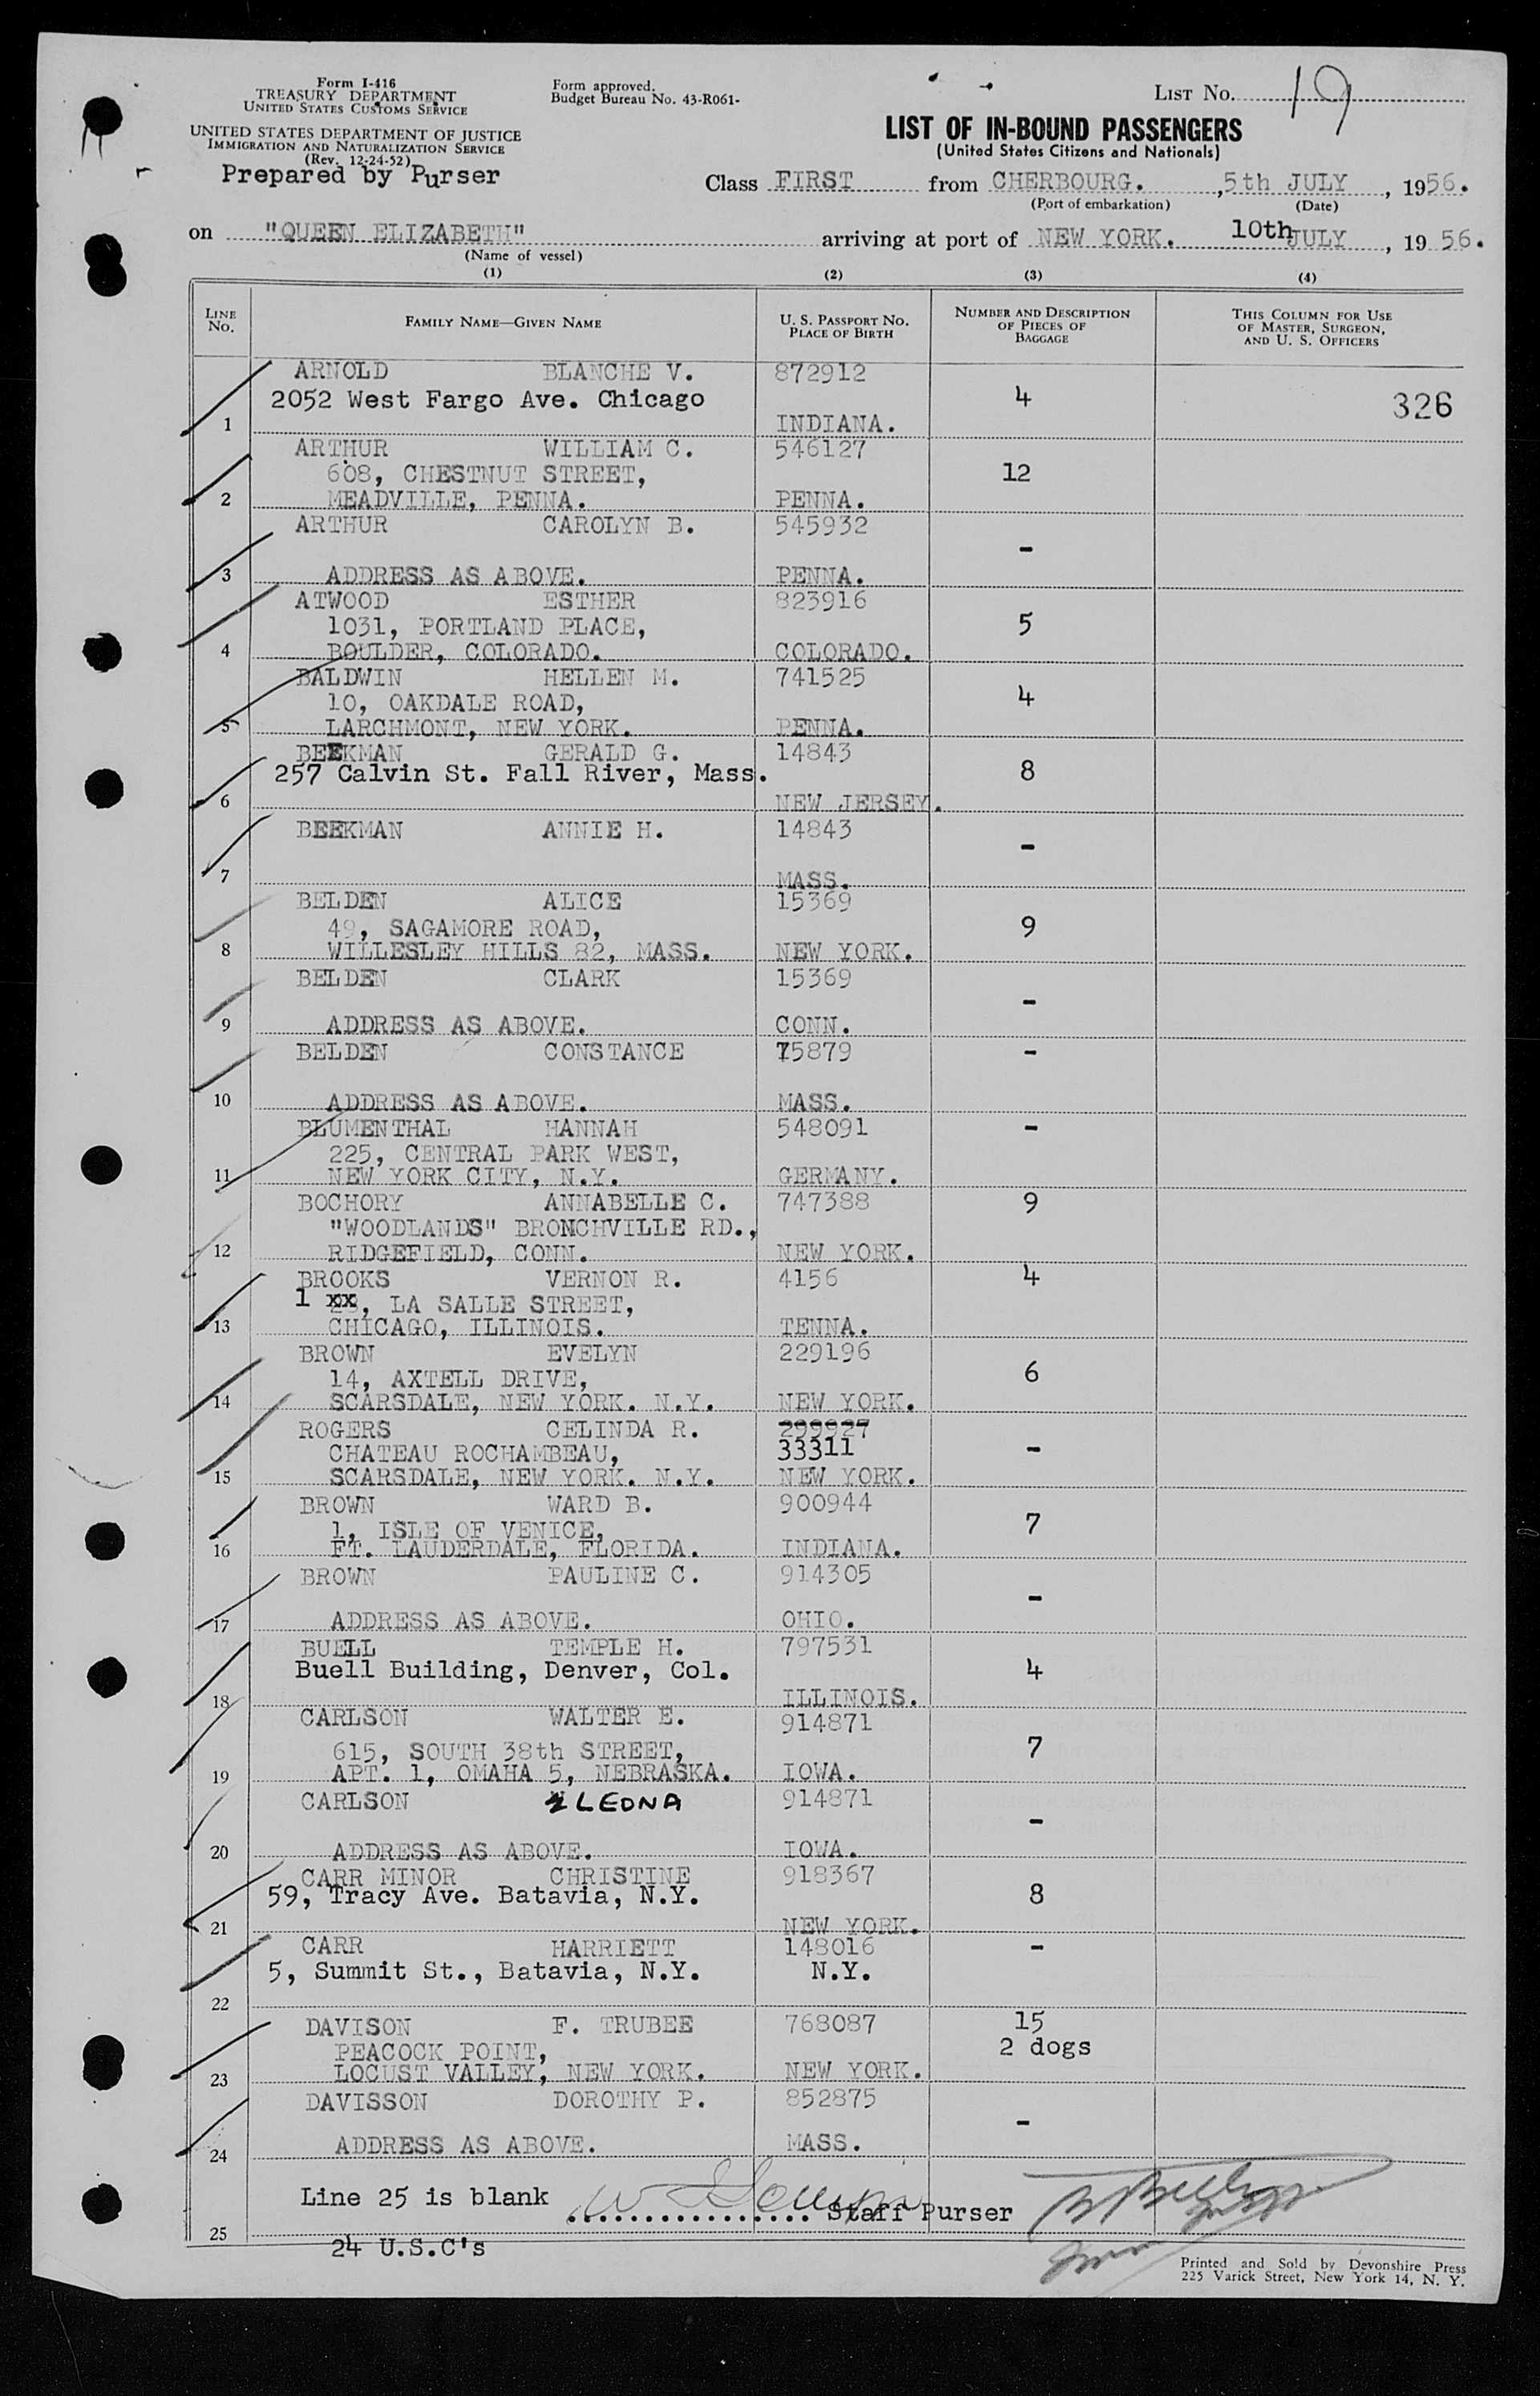 Form I-416
TREASURY DEPARTMENT
UNITED STATES CUSTOMS SERVICE
UNITED STATES DEPARTMENT OF JUSTICE
IMMIGRATION AND NATURALIZATION SERVICE
(Rev. 12-24-52)
Prepared by Purser
Form approved.
Budget Bureau No. 43-R061-
LIST NO. 19
LIST OF IN-BOUND PASSENGERS
(United States Citizens and Nationals)
Class FIRST from CHERBOURG. , 5th JULY , 1956.
(Port of embarkation) (Date)
on "QUEEN ELIZABETH" arriving at port of NEW YORK. 10th JULY , 1956.
(Name of vessel)
(1) (2) (3) (4)
LINE NO. FAMILY NAME—GIVEN NAME U. S. PASSPORT NO. PLACE OF BIRTH NUMBER AND DESCRIPTION OF PIECES OF BAGGAGE THIS COLUMN FOR USE OF MASTER, SURGEON, AND U. S. OFFICERS
ARNOLD BLANCHE V. 872912
2052 West Fargo Ave. Chicago 4 326
1 INDIANA.
ARTHUR WILLIAM C. 546127
608, CHESTNUT STREET, 12
2 MEADVILLE, PENNA. PENNA.
ARTHUR CAROLYN B. 545932
-
3 ADDRESS AS ABOVE. PENNA.
ATWOOD ESTHER 823916
1031, PORTLAND PLACE, 5
4 BOULDER, COLORADO. COLORADO.
BALDWIN HELLEN M. 741525
10, OAKDALE ROAD, 4
5 LARCHMONT, NEW YORK. PENNA.
BEEKMAN GERALD G. 14843
257 Calvin St. Fall River, Mass. 8
6 NEW JERSEY.
BEEKMAN ANNIE H. 14843
-
7 MASS.
BELDEN ALICE 15369
49, SAGAMORE ROAD, 9
8 WILLESLEY HILLS 82, MASS. NEW YORK.
BELDEN CLARK 15369
-
9 ADDRESS AS ABOVE. CONN.
BELDEN CONSTANCE 15879 -
10 ADDRESS AS ABOVE. MASS.
BLUMENTHAL HANNAH 548091 -
225, CENTRAL PARK WEST,
11 NEW YORK CITY, N.Y. GERMANY.
BOCHORY ANNABELLE C. 747388 9
"WOODLANDS" BRONCHVILLE RD.,
12 RIDGEFIELD, CONN. NEW YORK.
BROOKS VERNON R. 4156 4
1 xx, LA SALLE STREET,
13 CHICAGO, ILLINOIS. TENNA.
BROWN EVELYN 229196
14, AXTELL DRIVE, 6
14 SCARSDALE, NEW YORK. N.Y. NEW YORK.
ROGERS CELINDA R. 299927
CHATEAU ROCHAMBEAU, 33311 -
15 SCARSDALE, NEW YORK. N.Y. NEW YORK.
BROWN WARD B. 900944
1, ISLE OF VENICE, 7
16 FT. LAUDERDALE, FLORIDA. INDIANA.
BROWN PAULINE C. 914305
-
17 ADDRESS AS ABOVE. OHIO.
BUELL TEMPLE H. 797531
Buell Building, Denver, Col. 4
18 ILLINOIS.
CARLSON WALTER E. 914871
615, SOUTH 38th STREET, 7
19 APT. 1, OMAHA 5, NEBRASKA. IOWA.
CARLSON LEONA 914871
-
20 ADDRESS AS ABOVE. IOWA.
CARR MINOR CHRISTINE 918367
59, Tracy Ave. Batavia, N.Y. 8
21 NEW YORK.
CARR HARRIETT 148016 -
5, Summit St., Batavia, N.Y. N.Y.
22
DAVISON F. TRUBEE 768087 15
PEACOCK POINT, 2 dogs
23 LOCUST VALLEY, NEW YORK. NEW YORK.
DAVISSON DOROTHY P. 852875
-
24 ADDRESS AS ABOVE. MASS.
Line 25 is blank ................ Staff Purser
25
24 U.S.C's
Printed and Sold by Devonshire Press
225 Varick Street, New York 14, N. Y.